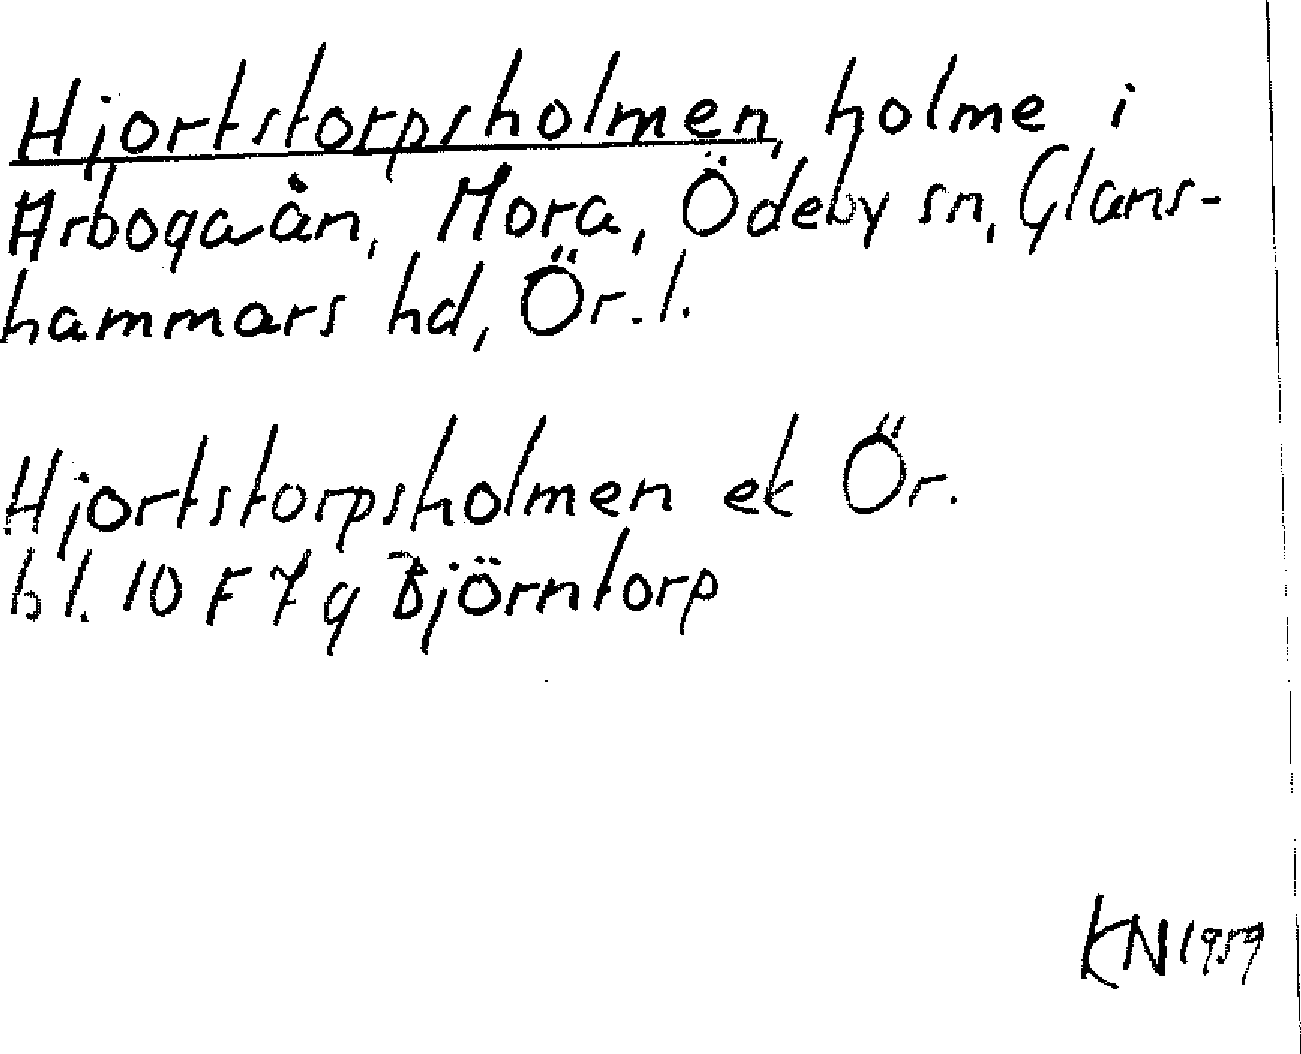 Hjortstorpsholmen, holme i
Arbogaån, Mora, Ödeby sn, Glans-
hammars hd, Ör. l.
Hjortstorpsholmen ek Ör.
bl. 10 F 7 g Björntorp
KN 1959